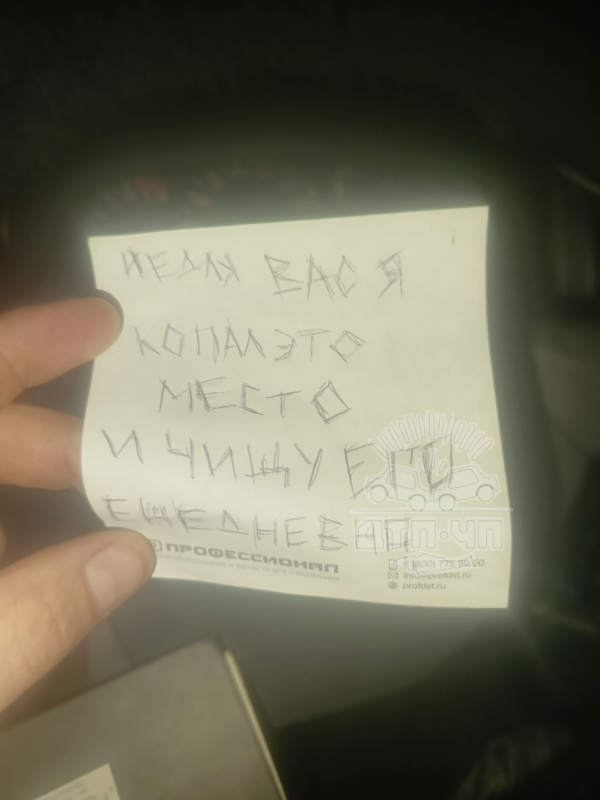 НЕДЛЯ ВАСЯ
КОПАЛ ЭТО
МЕСТО
И ЧИЩУ ЕГО
ЕЖЕДНЕВНО
ДТП·ЧП
ПРОФЕССИОНАЛ
info@profdst.ru
profdst.ru